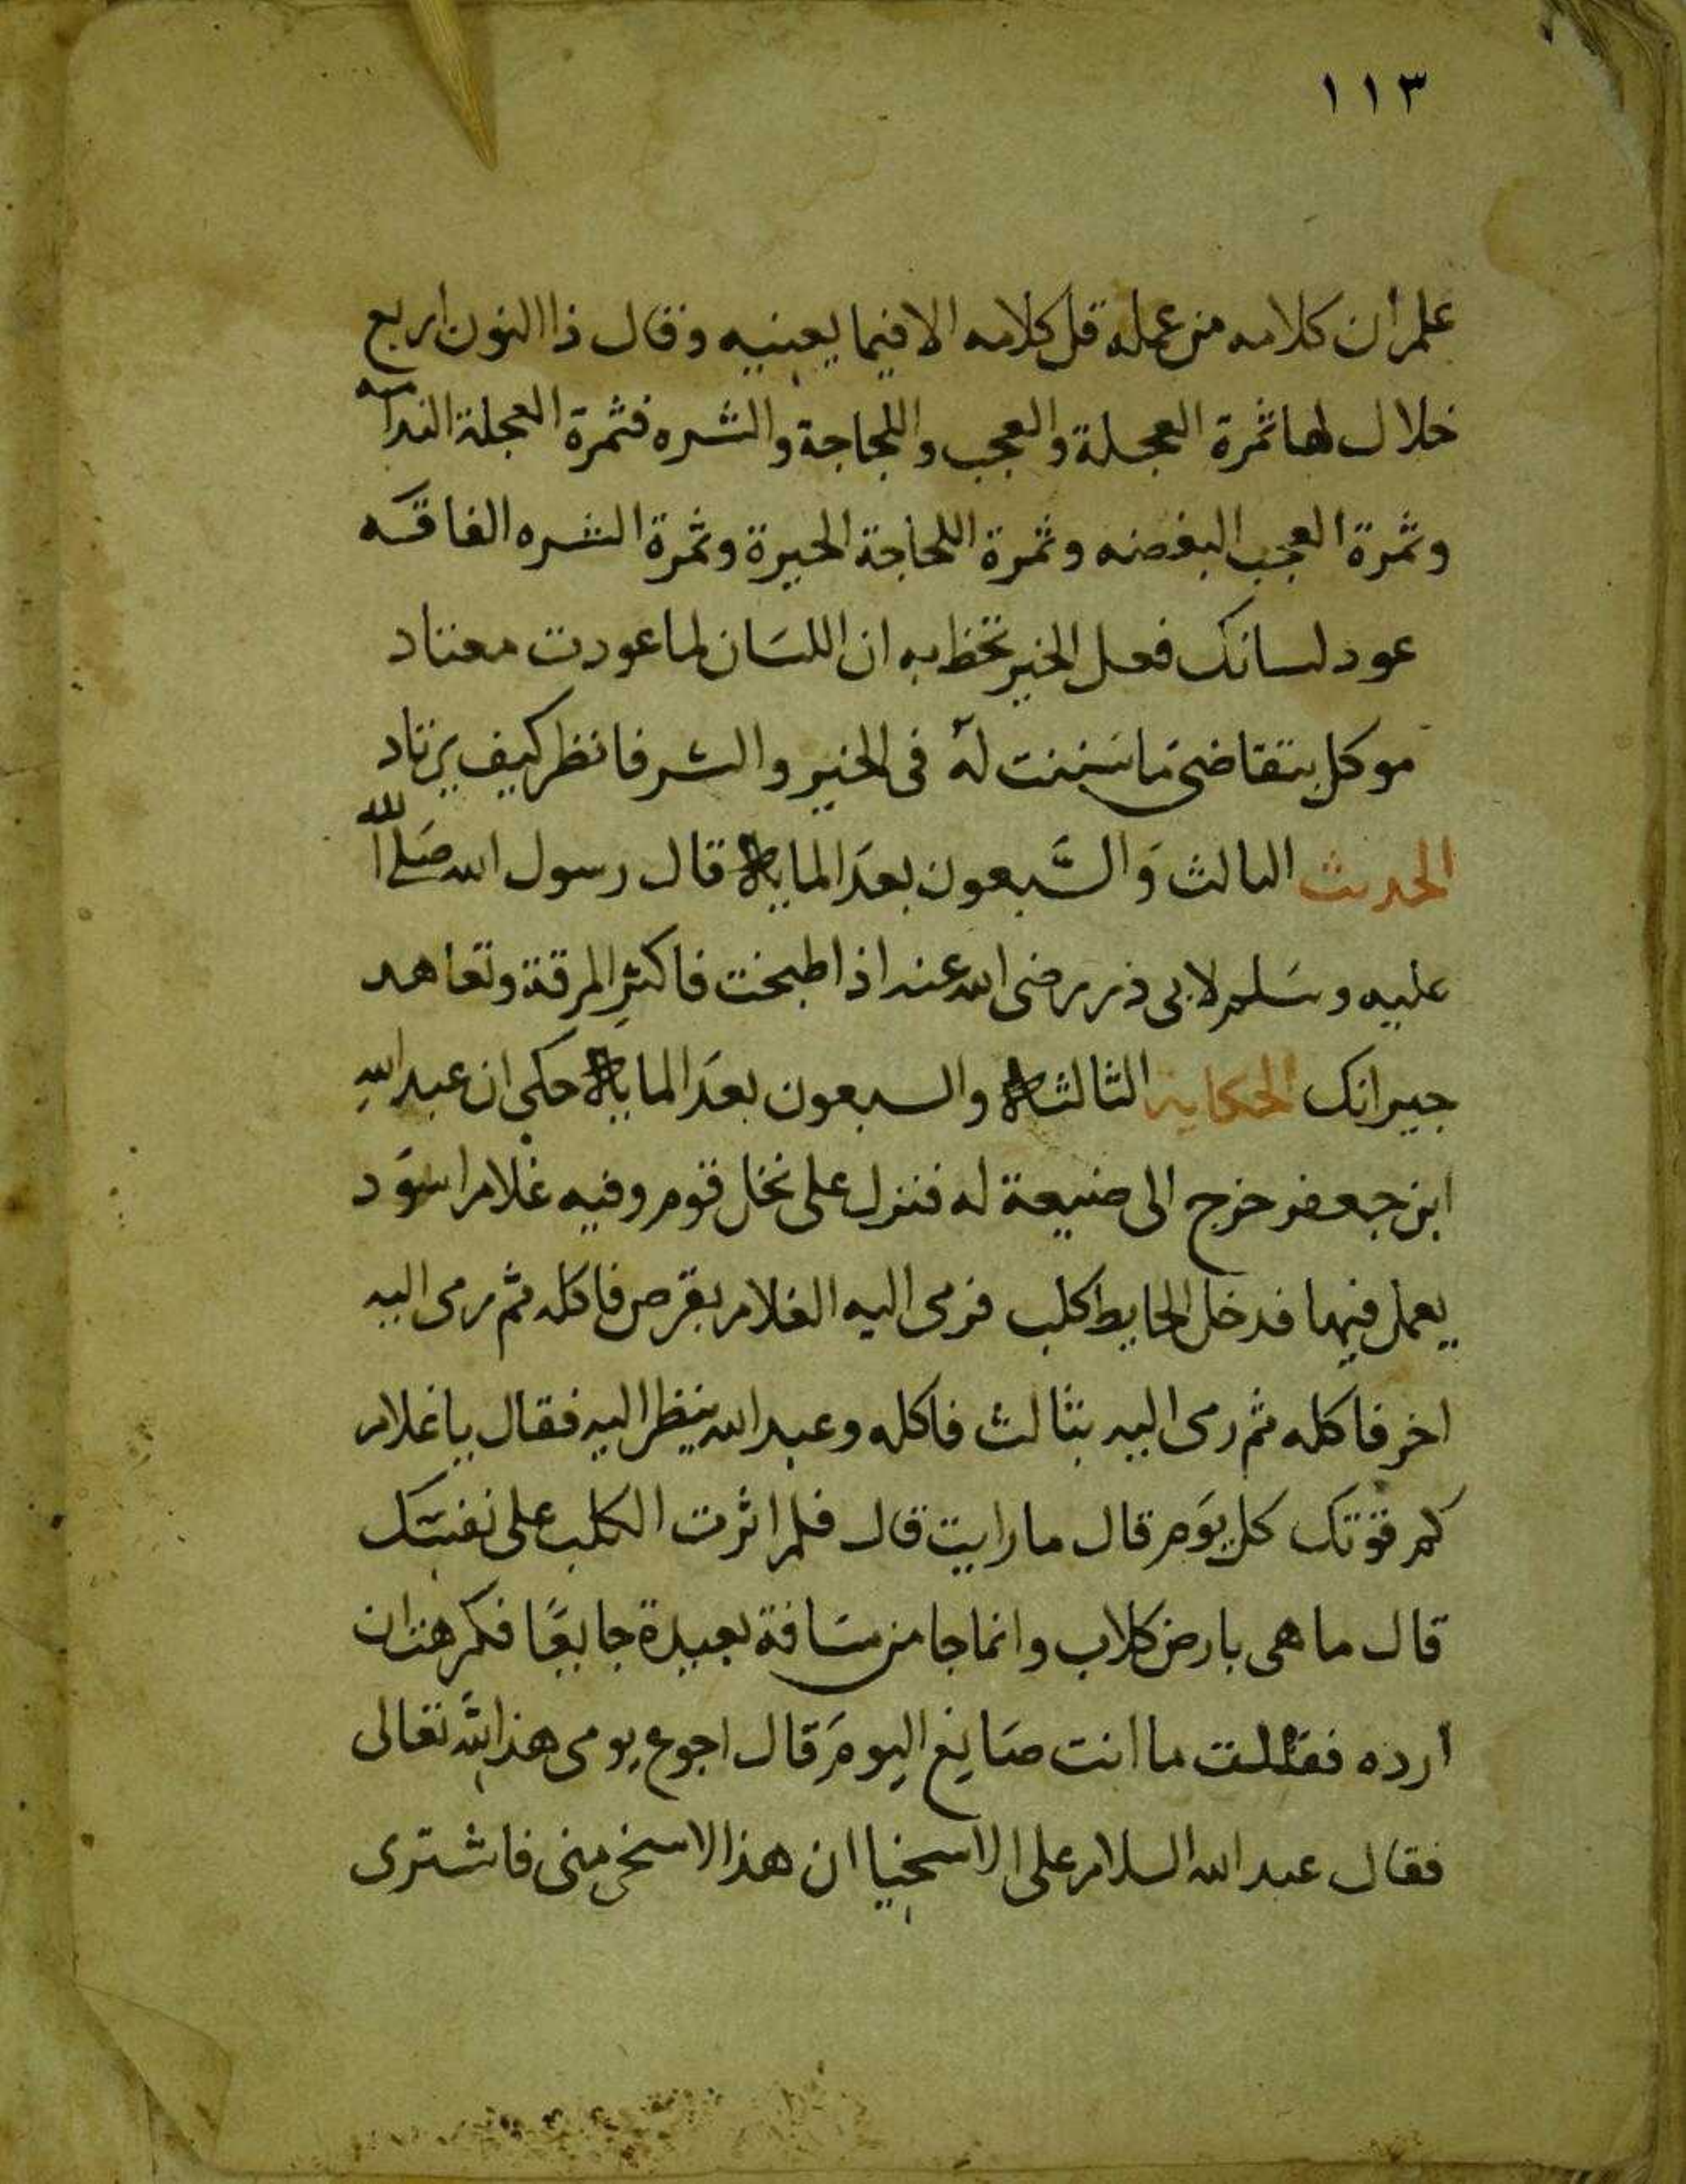 ١١٣
علم ان كلامه من عمله قل كلامه الا فيما يعنيه وقال ذا النون اربع
خلال لها ثمرة العجلة والعجب واللجاجة والشره فثمرة العجلة الندامه
وثمرة العجب البغضه وثمرة اللجاجة الحيرة وثمرة الشره الفاقه
عود لسانك فعل الخير تحظ به ان اللسان لما عودت معتاد
موكل بتقاضى ما سننت له فى الخير والشر فانظر كيف يرتاد
الحديث الثالث والسبعون بعد المايه قال رسول الله صلى الله
عليه وسلم لابى ذر رضى الله عنه اذا طبخت فاكثر المرقة وتعاهد
جيرانك الحكاية الثالثه والسبعون بعد المايه حكى ان عبد الله
ابن جعفر خرج الى ضيعة له فنزل على نخل قوم وفيه غلام اسود
يعمل فيها فدخل الحايط كلب فرمى اليه الغلام بقرص فاكله ثم رمى اليه
اخر فاكله ثم رمى اليه بثالث فاكله وعبد الله ينظر اليه فقال يا غلام
كم قوتك كل يوم قال ما رايت قال فلم اثرت الكلب على نفسك
قال ما هى بارض كلاب وانما جا من مسافة بعيدة جايعًا فكرهت ان
ارده فقلت ما انت صايغ اليوم قال اجوع يومى هذا لله تعالى
فقال عبد الله السلام على الاسخيا ان هذا لاسخى منى فاشترى